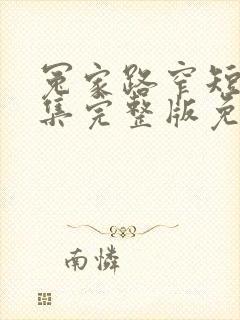 冤家路窄短
集完整版免
南怜